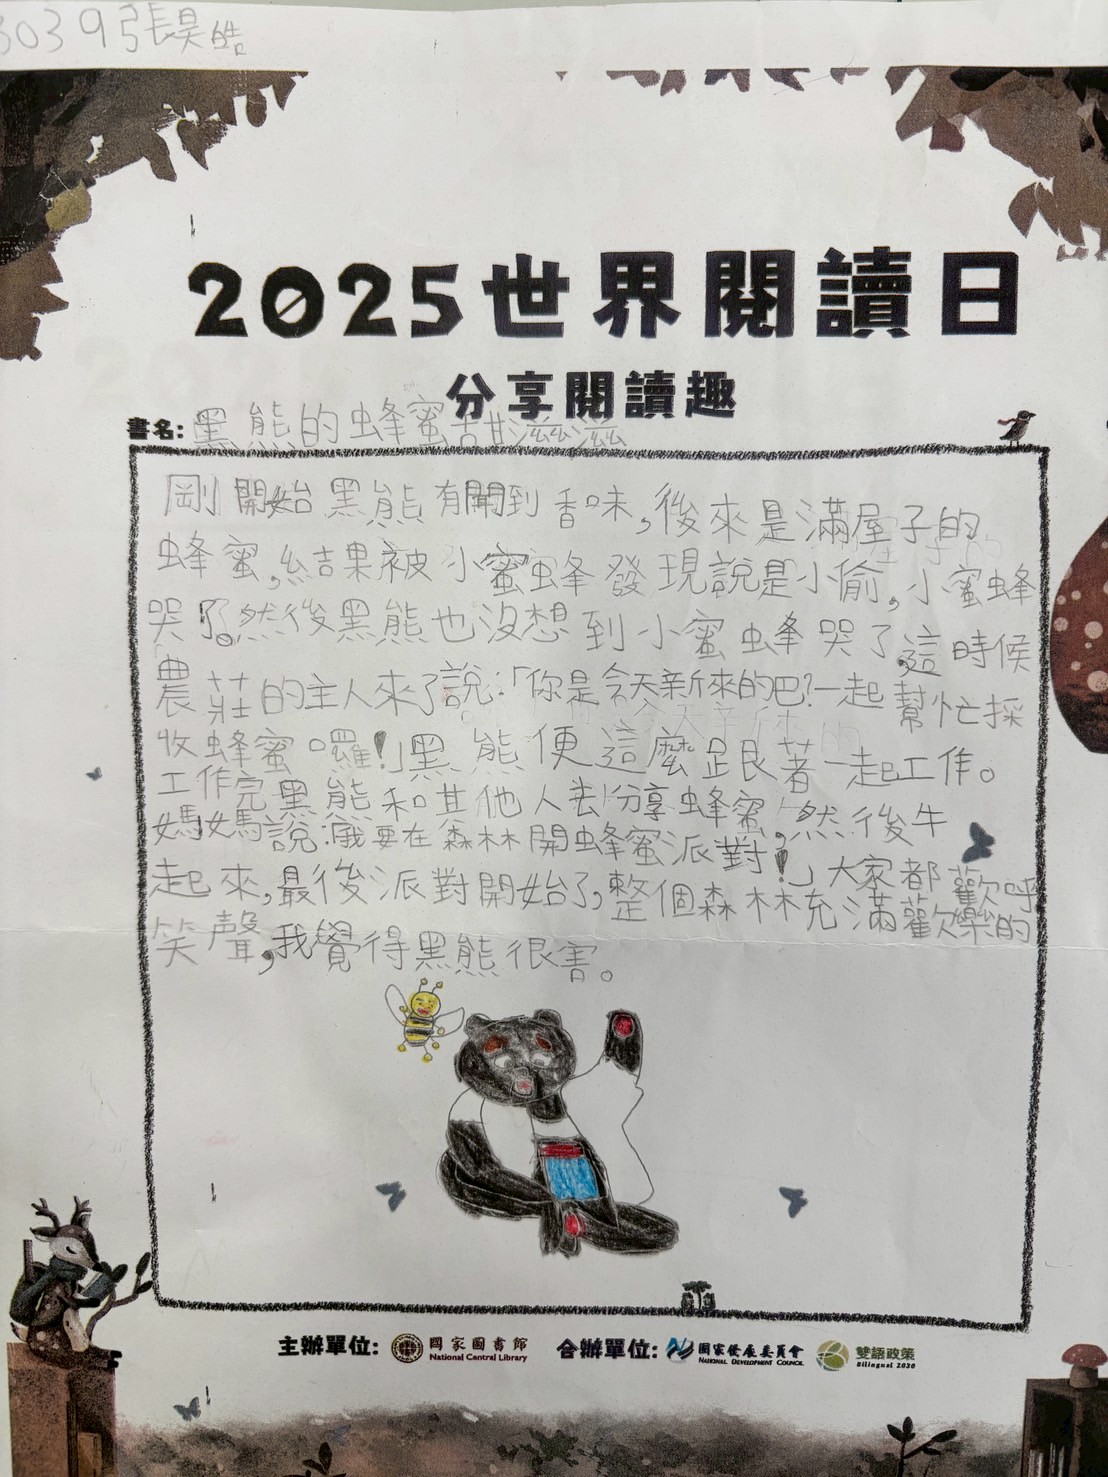 3039張昊皓
2025世界閱讀日
分享閱讀趣
書名:黑熊的蜂蜜甜滋滋
剛開始黑熊有聞到香味,後來是滿屋子的
蜂蜜,結果被小蜜蜂發現說是小偷,小蜜蜂
哭了。然後黑熊也沒想到小蜜蜂哭了,這時候
農莊的主人來了說:「你是今天新來的吧?一起幫忙採
收蜂蜜囉!」黑熊便這麼跟著一起工作。
工作完黑熊和其他人去分享蜂蜜,然後牛
媽媽說:「我要在森林開蜂蜜派對!」大家都歡呼
起來,最後派對開始了,整個森林充滿歡樂的
笑聲,我覺得黑熊很害。
主辦單位: 國家圖書館 National Central Library 合辦單位: 國家發展委員會 NATIONAL DEVELOPMENT COUNCIL 雙語政策 Bilingual 2030